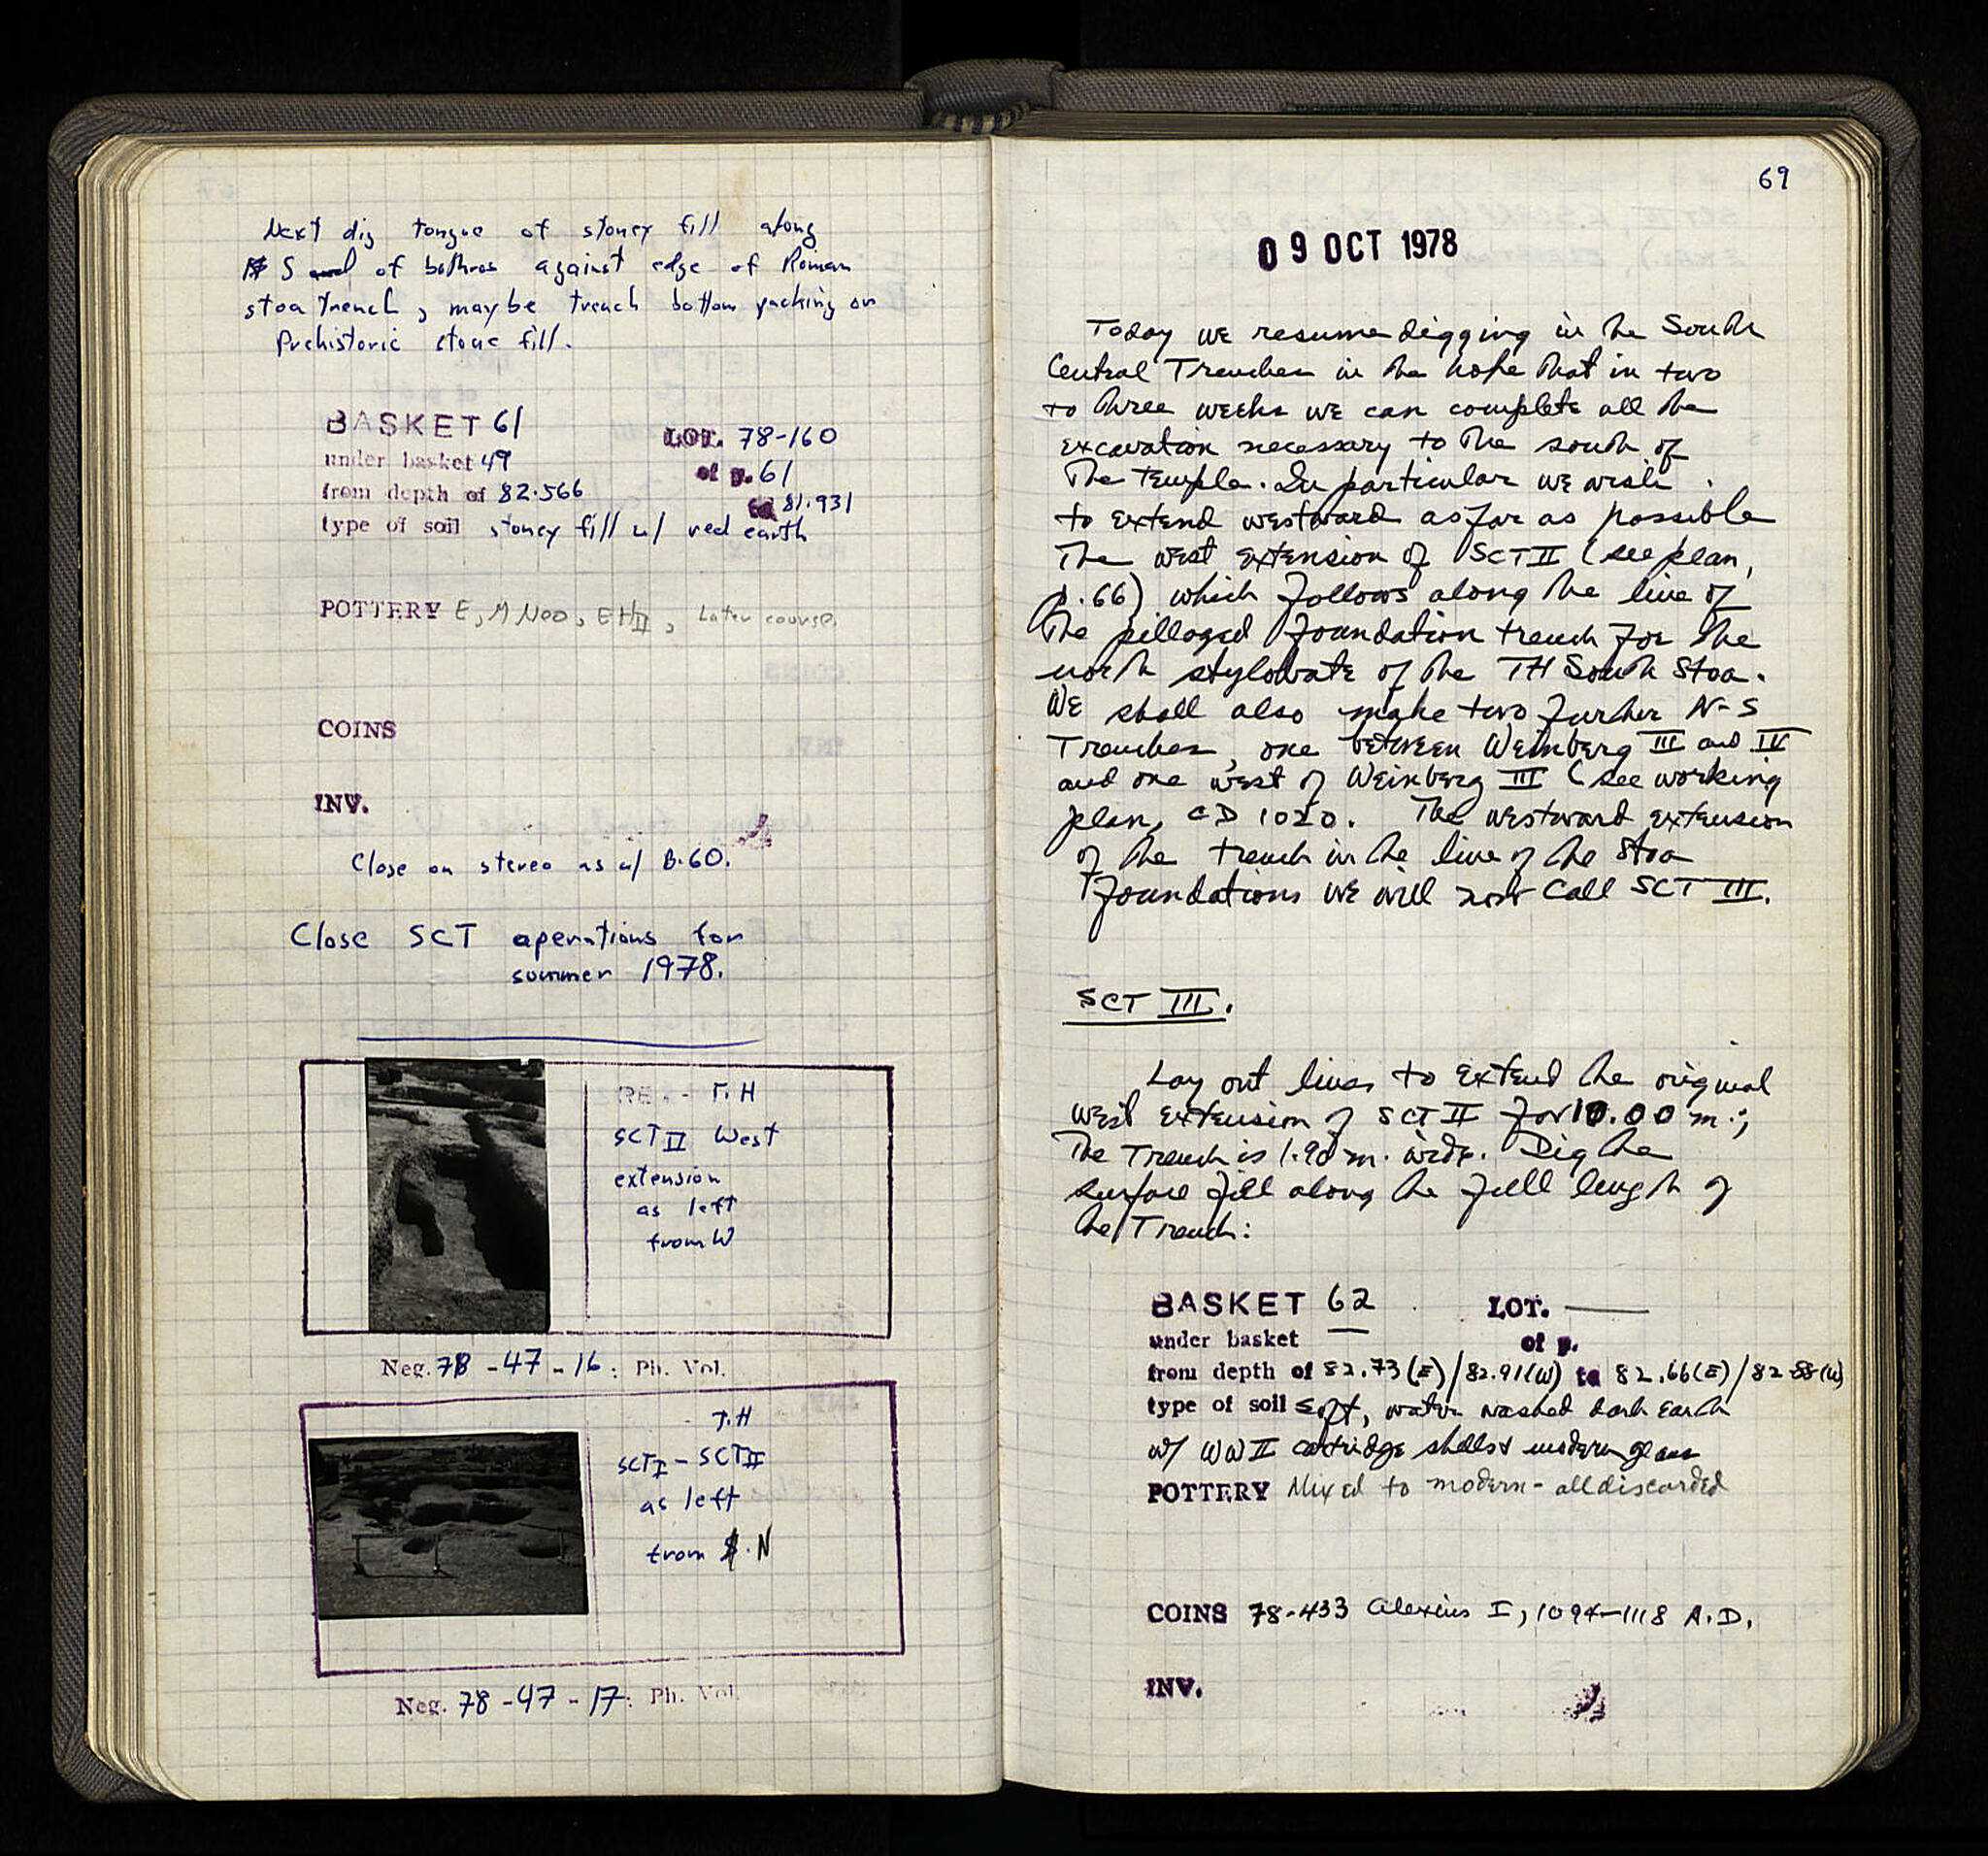 Next dig tongue of stoney fill along
S of bothros against edge of Roman
stoa trench, maybe trench bottom packing or
Prehistoric stone fill.
BASKET 61 LOT. 78-160
under basket 49 of p. 61
from depth of 82.566 to 81.931
type of soil stoney fill w/ red earth
POTTERY E, M Neo, EH II, Later course.
COINS
INV.
Close on stereo as w/ B.60.
Close SCT operations for
summer 1978.
T.H
SCT II West
extension
as left
from W
Neg. 78-47-16: Ph. Vol.
T.H
SCT I - SCT II
as left
from N
Neg. 78-47-17: Ph. Vol.
69
09 OCT 1978
Today we resume digging in the South
Central Trenches in the hope that in two
to three weeks we can complete all the
excavation necessary to the south of
The Temple. In particular we wish
to extend westward as far as possible
The west extension of SCT II (see plan,
p. 66) which follows along the line of
The pillaged foundation trench for the
north stylobate of the TH South Stoa.
We shall also make two further N-S
Trenches, one between Weinberg III and IV
and one west of Weinberg III (see working
plan, CD 1020. The westward extension
of the trench in the line of the Stoa
foundations we will now call SCT III.
SCT III.
Lay out lines to extend the original
west extension of SCT II for 10.00 m.;
The Trench is 1.90 m. wide. Dig the
surface fill along the full length of
the Trench:
BASKET 62 LOT. —
under basket — of p.
from depth of 82.73(E)/82.91(W) to 82.66(E)/82.88(W)
type of soil soft, water washed dark earth
w/ WW II cartridge shells & modern glass
POTTERY Mixed to modern - all discarded
COINS 78-433 Alexius I, 1094-1118 A.D.
INV.